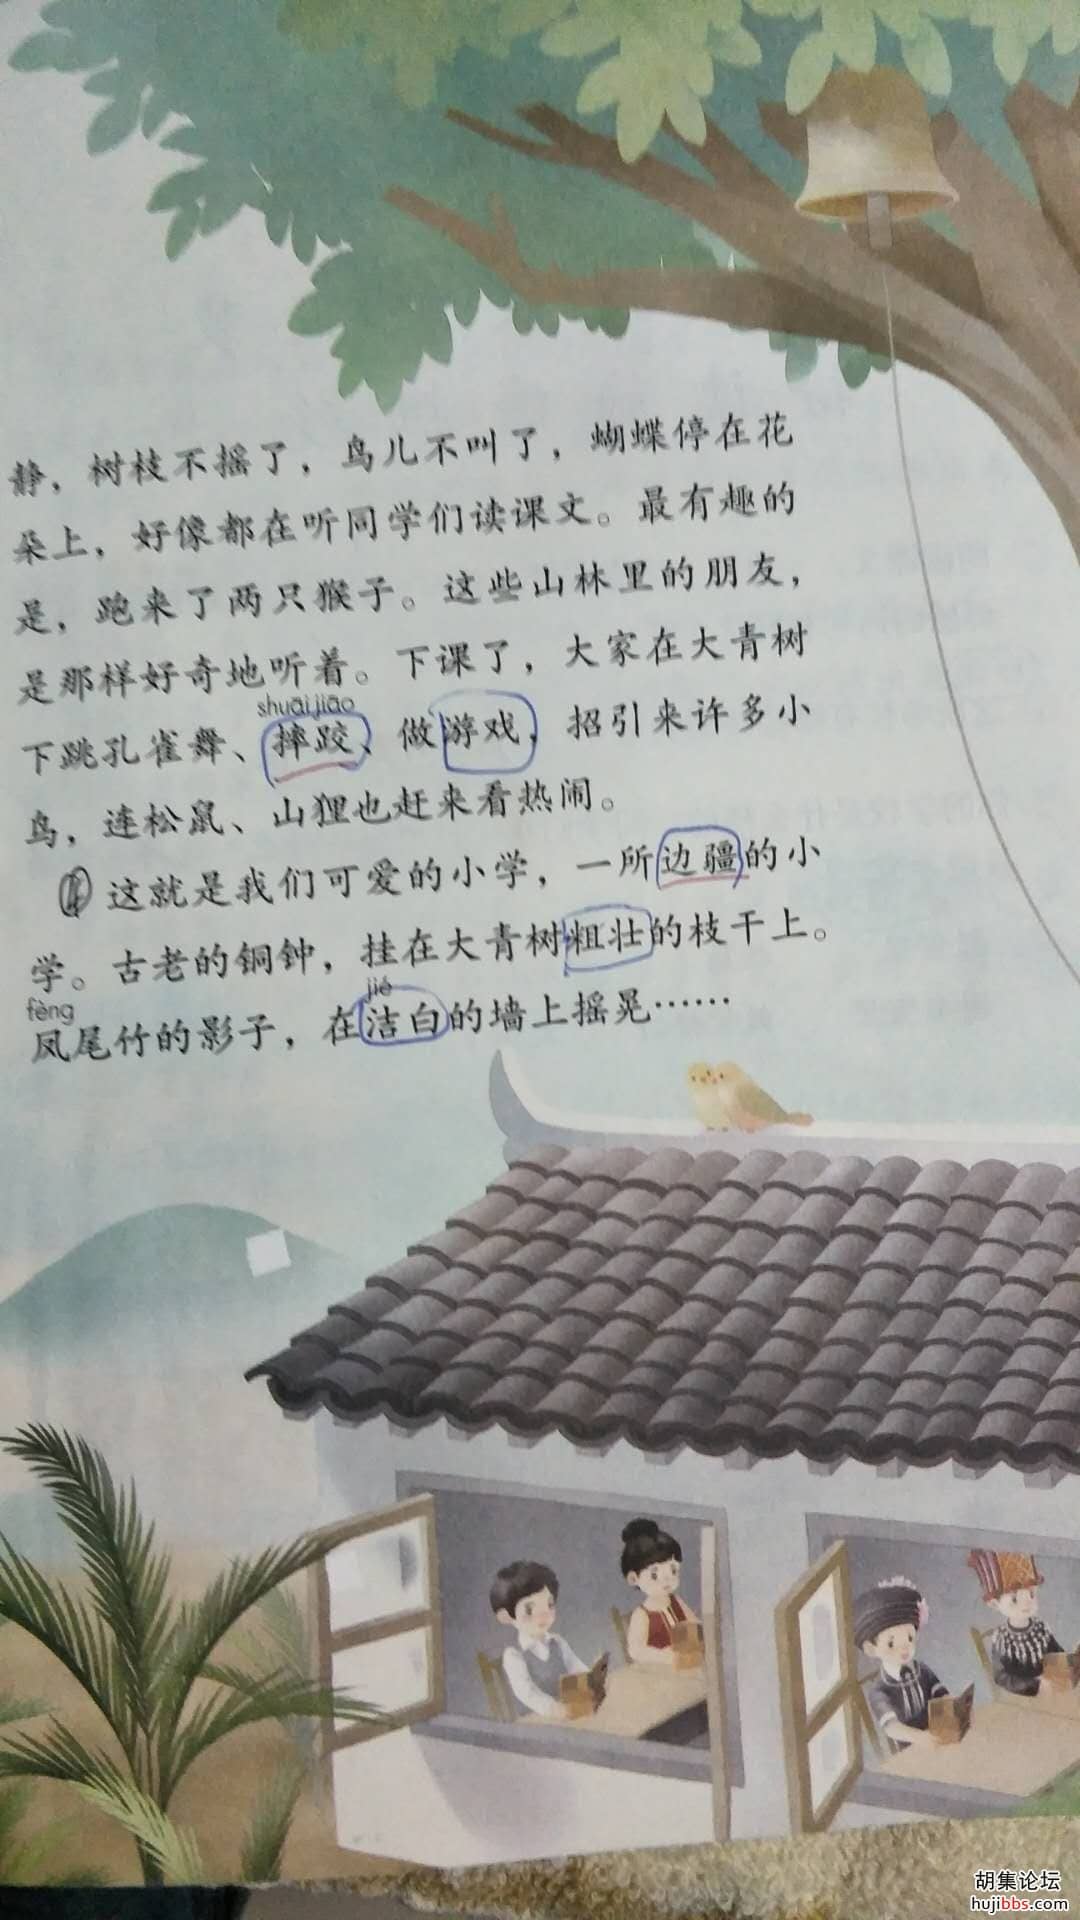 静，树枝不摇了，鸟儿不叫了，蝴蝶停在花
朵上，好像都在听同学们读课文。最有趣的
是，跑来了两只猴子。这些山林里的朋友，
是那样好奇地听着。下课了，大家在大青树
shuāi jiāo
下跳孔雀舞、摔跤、做游戏，招引来许多小
鸟，连松鼠、山狸也赶来看热闹。
④ 这就是我们可爱的小学，一所边疆的小
学。古老的铜钟，挂在大青树粗壮的枝干上。
fèng jié
凤尾竹的影子，在洁白的墙上摇晃……
胡集论坛
hujibbs.com